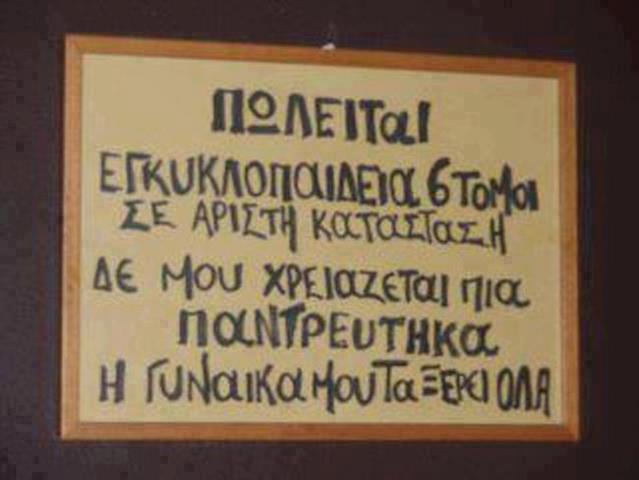 ΠΩΛΕΙΤΑΙ
ΕΓΚΥΚΛΟΠΑΙΔΕΙΑ 6 ΤΟΜΟΙ
ΣΕ ΑΡΙΣΤΗ ΚΑΤΑΣΤΑΣΗ
ΔΕ ΜΟΥ ΧΡΕΙΑΖΕΤΑΙ ΠΙΑ
ΠΑΝΤΡΕΥΤΗΚΑ
Η ΓΥΝΑΙΚΑ ΜΟΥ ΤΑ ΞΕΡΕΙ ΟΛΑ